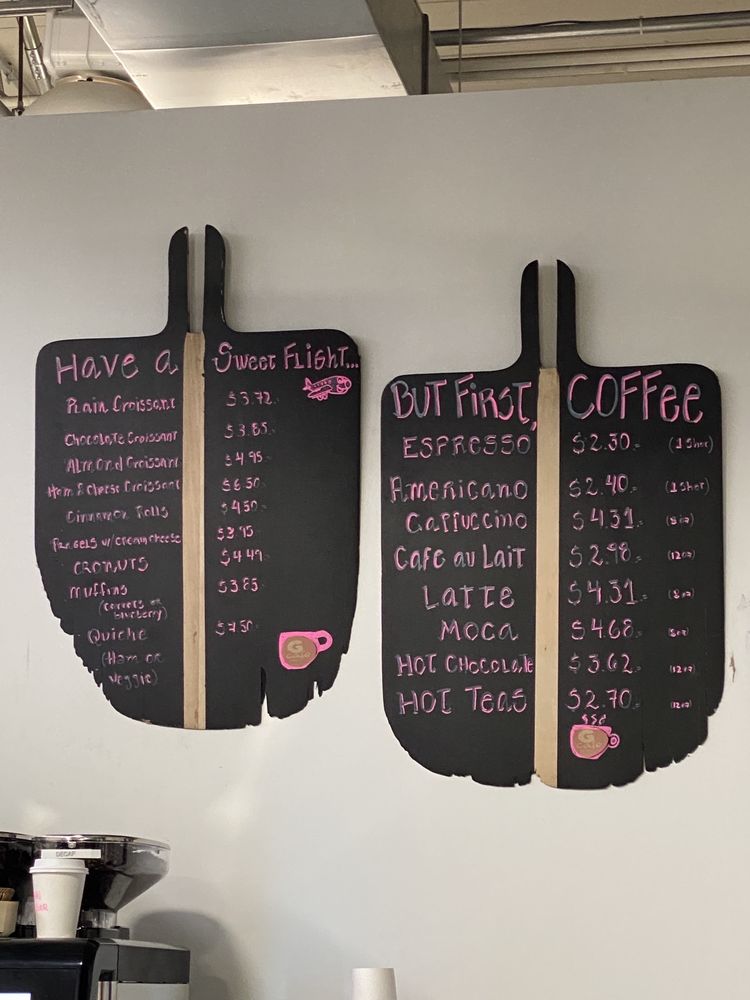 Have a Sweet Flight...
Plain Croissant $3.72
Chocolate Croissant $3.85
Almond Croissant $4.95
Ham & Cheese Croissant $6.50
Cinnamon Rolls $4.50
Bagels w/ cream cheese $3.95
CRONUTS $4.49
Muffins $3.85
(carrots or
blueberry)
Quiche $7.50
(Ham or
veggie)
G
Café
BUT FIRST, COFFee
ESPRESSO $2.30 (1 Shot)
Americano $2.40 (1 Shot)
Cappuccino $4.31 (8 oz)
Cafe au Lait $2.98 (12 oz)
Latte $4.31 (8 oz)
Moca $4.68 (8 oz)
HOT CHOCOLATE $3.62 (12 oz)
HOT Teas $2.70 (12 oz)
G
Café
DECAF